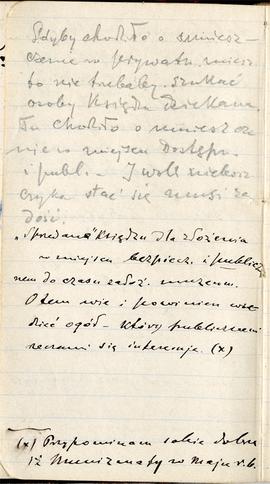 Gdyby chodziło o umiesz-
czenie w prywatn. miesz
to nie trzebaby szukać
osoby Księdza Dziekana.
Tu chodziło o umieszcze
nie w miejscu Dostępn.
i publ. - I woli
stać się musi za-
dość.
„Sprzedane” Księdzu dla złożenia
w miejscu bezpiecz. i publicz
nem do czasu założ. muzeum.
O tem wie i powinien wie
dzieć ogół - który publicznemi
rzeczami się interesuje. (x)
(x) Przypominam sobie dobrze
iż Numizmaty w Maju r. b.